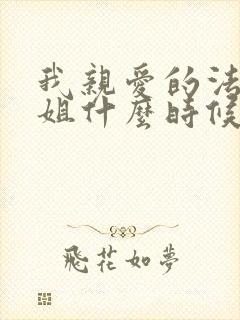 我親愛的法
姐什麼時候
飛花如夢